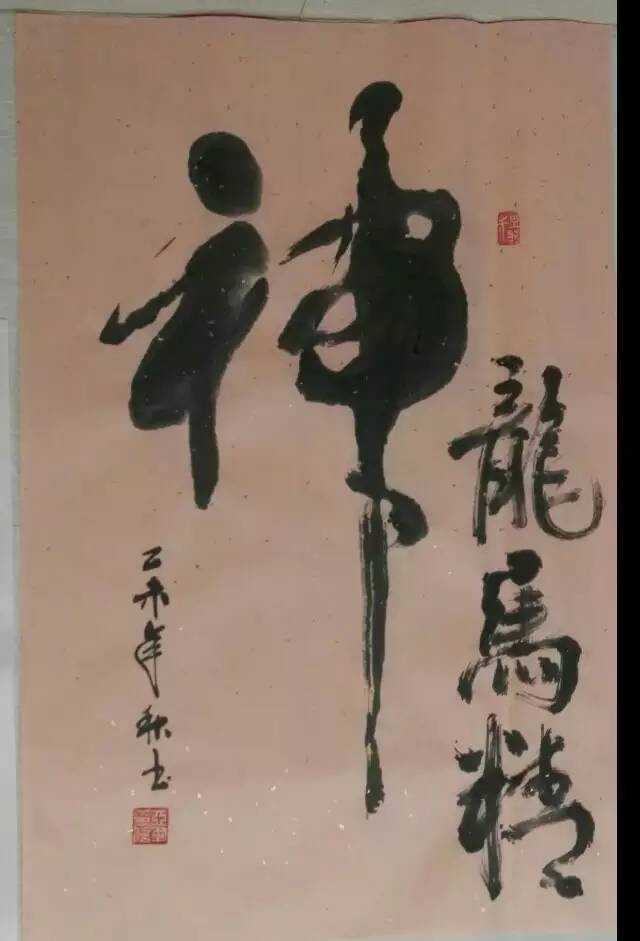 龍馬精
神
乙未年秋书